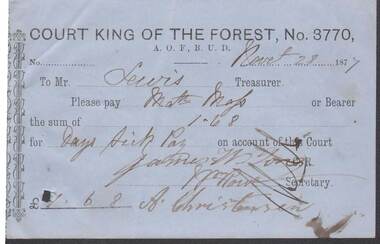 COURT KING OF THE FOREST, No. 3770,
A. O. F., B. U. D.
No. 28 1877
To Mr. Lewis Treasurer.
Please pay Moss or Bearer
the sum of 1-6 8
for Days Sick Pay on account of the Court
James R.
Secretary.
£ 1.6.8 A. Christensen